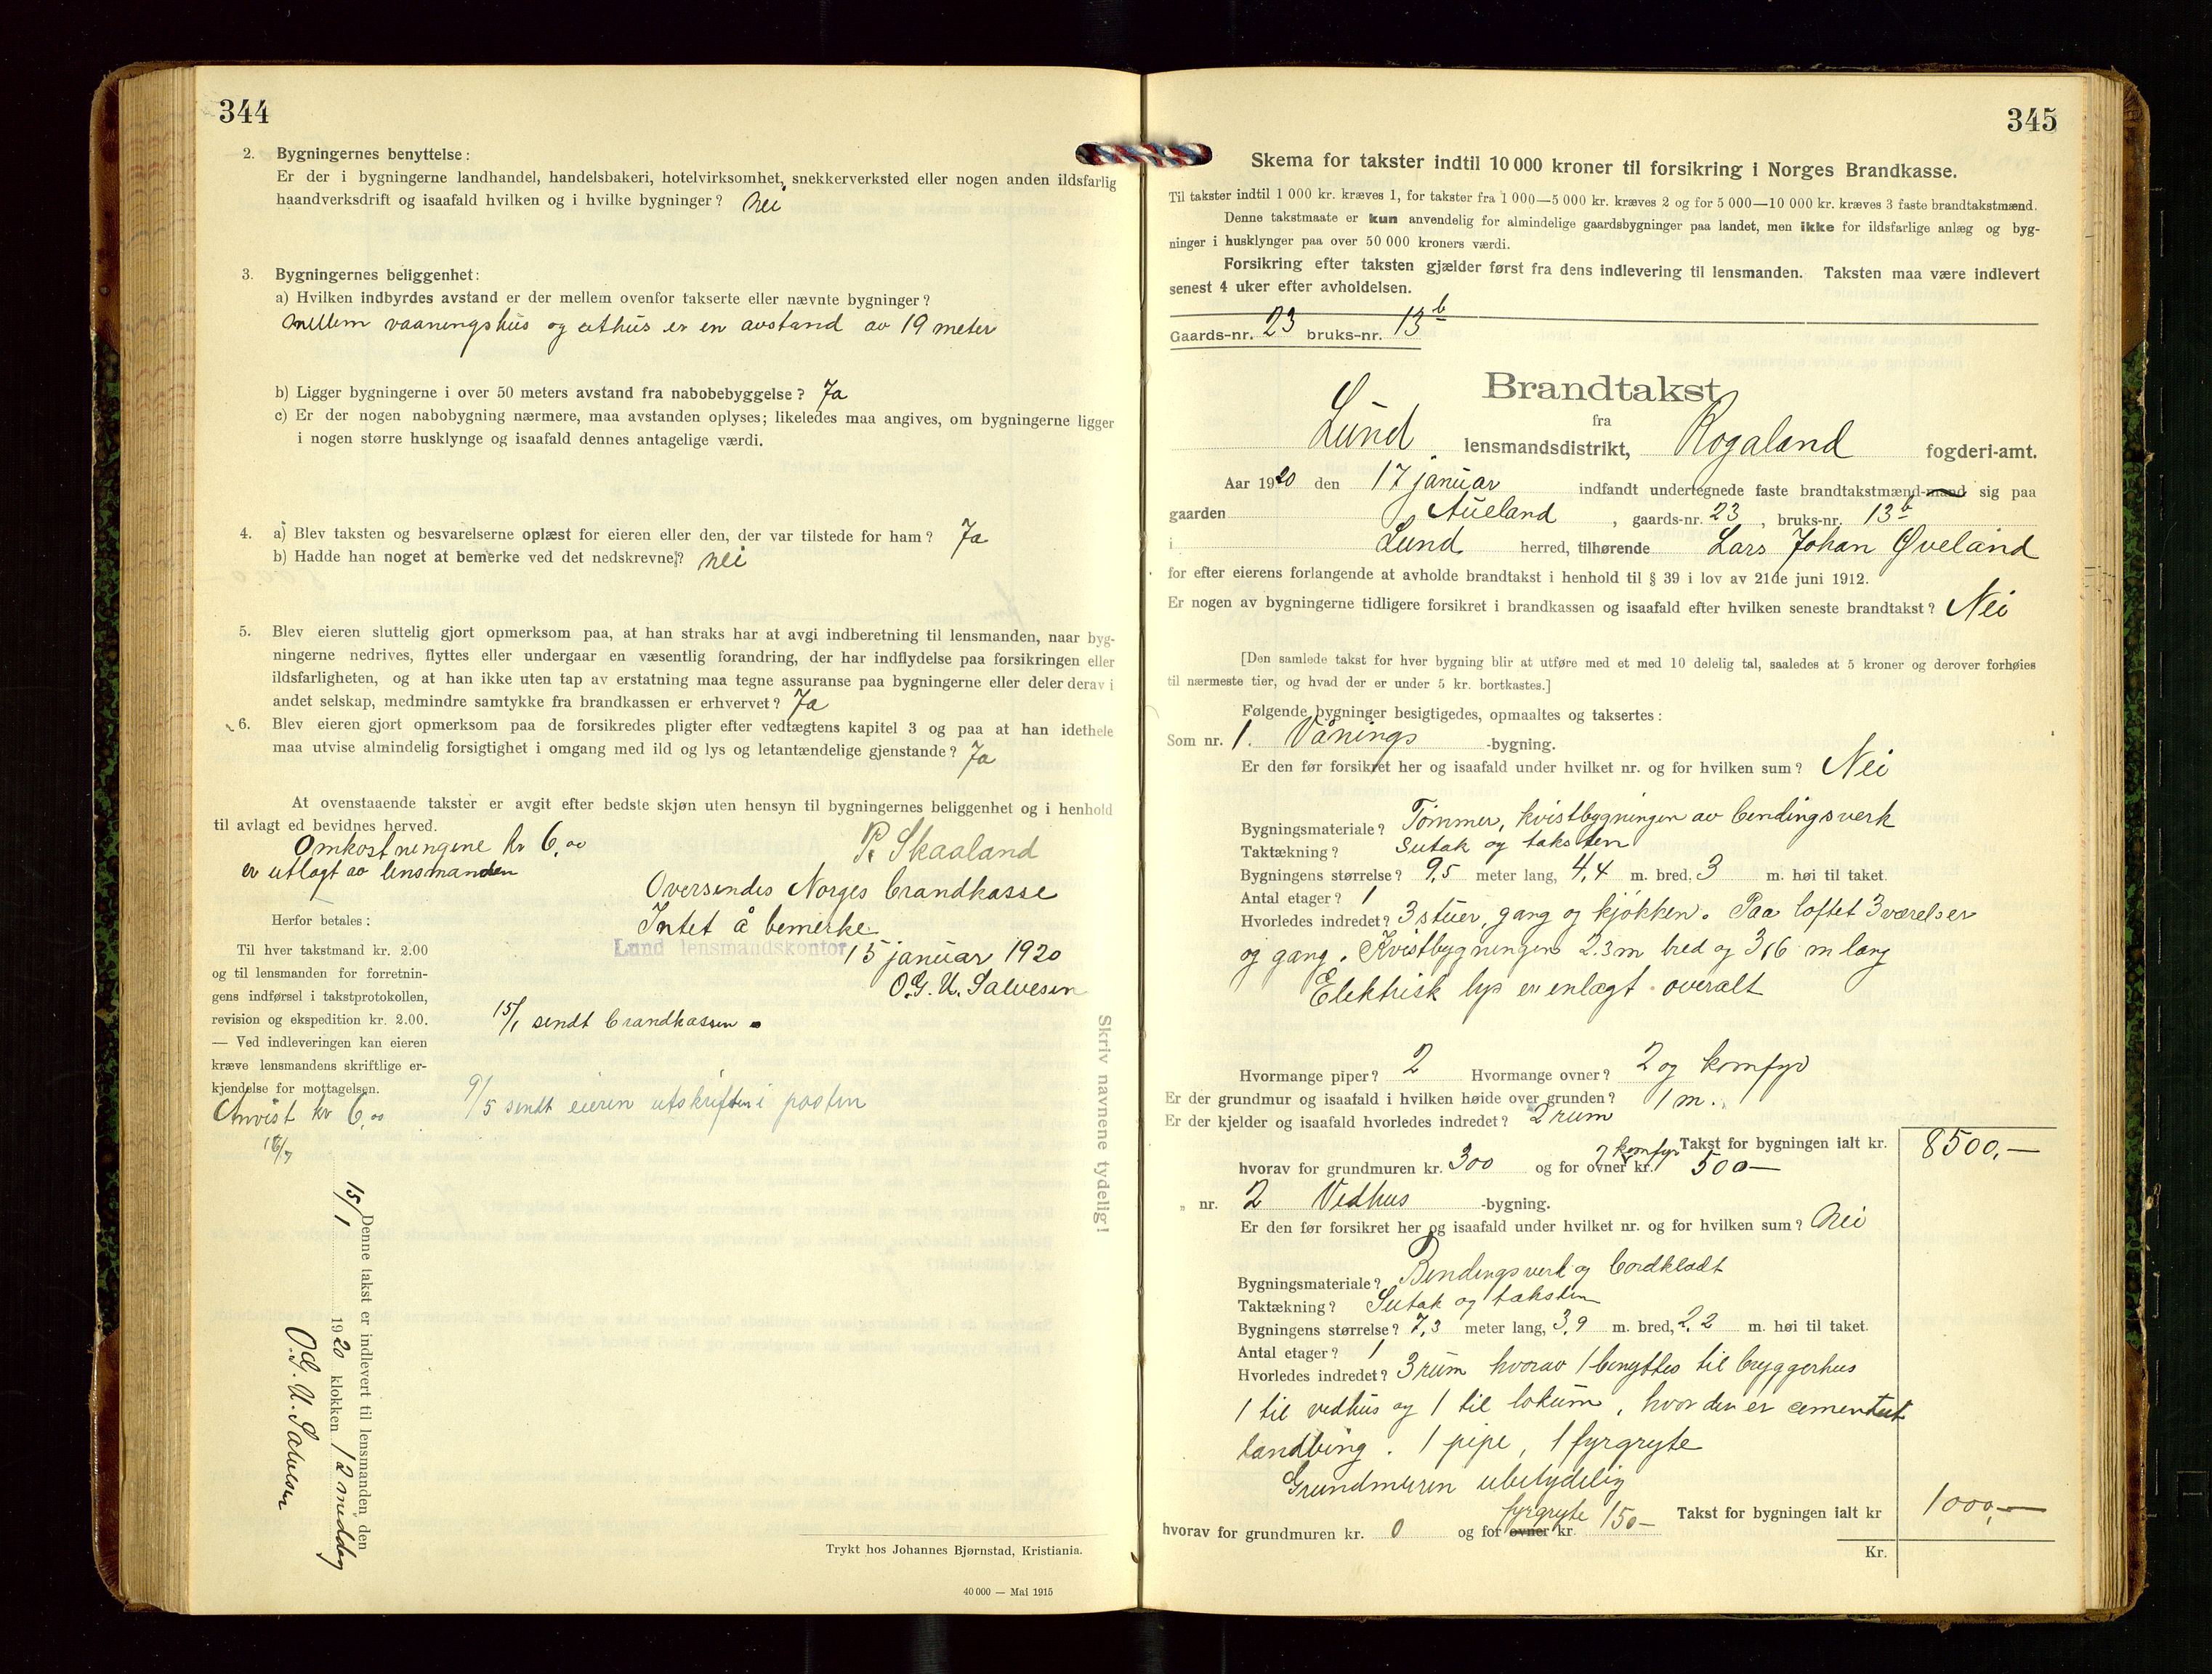 344
2. Bygningernes benyttelse:
Er der i bygningerne landhandel, handelsbakeri, hotelvirksomhet, snekkerverksted eller nogen anden ildsfarlig
haandverksdrift og isaafald hvilken og i hvilke bygninger? Nei
3. Bygningernes beliggenhet:
a) Hvilken indbyrdes avstand er der mellem ovenfor takserte eller nævnte bygninger?
Mellem vaaningshus og uthus er en avstand av 19 meter
b) Ligger bygningerne i over 50 meters avstand fra nabobebyggelse? Ja
c) Er der nogen nabobygning nærmere, maa avstanden oplyses; likeledes maa angives, om bygningerne ligger
i nogen større husklynge og isaafald dennes antagelige værdi.
4. a) Blev taksten og besvarelserne oplæst for eieren eller den, der var tilstede for ham? Ja
b) Hadde han noget at bemerke ved det nedskrevne? Nei
5. Blev eieren sluttelig gjort opmerksom paa, at han straks har at avgi indberetning til lensmanden, naar byg-
ningerne nedrives, flyttes eller undergaar en væsentlig forandring, der har indflydelse paa forsikringen eller
ildsfarligheten, og at han ikke uten tap av erstatning maa tegne assuranse paa bygningerne eller deler derav i
andet selskap, medmindre samtykke fra brandkassen er erhvervet? Ja
6. Blev eieren gjort opmerksom paa de forsikredes pligter efter vedtægtens kapitel 3 og paa at han idethele
maa utvise almindelig forsigtighet i omgang med ild og lys og letantændelige gjenstande? Ja
At ovenstaaende takster er avgit efter bedste skjøn uten hensyn til bygningernes beliggenhet og i henhold
til avlagt ed bevidnes herved.
Omkostningene kr 6,00
er utlagt av lensmanden
P. Skaaland
Oversendes Norges brandkasse
Intet å bemerke
Lund lensmandskontor 15 januar 1920
O.G. U. Salvesen
Herfor betales:
Til hver takstmand kr. 2.00
og til lensmanden for forretnin-
gens indførsel i takstprotokollen,
revision og ekspedition kr. 2.00.
— Ved indleveringen kan eieren
kræve lensmandens skriftlige er-
kjendelse for mottagelsen.
Anvist kr 6,00
15/1 sendt brandkassen
9/5 sendt eieren utskriften i posten
Denne takst er indlevert til lensmanden den
15/1 1920 klokken 12 middag
O.G. U. Salvesen
Skriv navnene tydelig!
Trykt hos Johannes Bjørnstad, Kristiania.
40 000 — Mai 1915
345
Skema for takster indtil 10 000 kroner til forsikring i Norges Brandkasse.
Til takster indtil 1 000 kr. kræves 1, for takster fra 1 000—5 000 kr. kræves 2 og for 5 000—10 000 kr. kræves 3 faste brandtakstmænd.
Denne takstmaate er kun anvendelig for almindelige gaardsbygninger paa landet, men ikke for ildsfarlige anlæg og byg-
ninger i husklynger paa over 50 000 kroners værdi.
Forsikring efter taksten gjælder først fra dens indlevering til lensmanden. Taksten maa være indlevert
senest 4 uker efter avholdelsen.
Gaards-nr. 23 bruks-nr. 13 b
Brandtakst
fra
Lund lensmandsdistrikt, Rogaland fogderi-amt.
Aar 1920 den 17 januar indfandt undertegnede faste brandtakstmænd-mand sig paa
gaarden Aueland, gaards-nr. 23, bruks-nr. 13 b
i Lund herred, tilhørende Lars Johan Øveland
for efter eierens forlangende at avholde brandtakst i henhold til § 39 i lov av 21de juni 1912.
Er nogen av bygningerne tidligere forsikret i brandkassen og isaafald efter hvilken seneste brandtakst? Nei
[Den samlede takst for hver bygning blir at utføre med et med 10 delelig tal, saaledes at 5 kroner og derover forhøies
til nærmeste tier, og hvad der er under 5 kr. bortkastes.]
Følgende bygninger besigtigedes, opmaaltes og taksertes:
Som nr. 1. Vånings -bygning.
Er den før forsikret her og isaafald under hvilket nr. og for hvilken sum? Nei
Bygningsmateriale? Tømmer, kvistbygningen av bendingsverk
Taktækning? Sutak og taksten
Bygningens størrelse? 9,5 meter lang, 4,4 m. bred, 3 m. høi til taket.
Antal etager? 1
Hvorledes indredet? 3 stuer, gang og kjøkken. Paa loftet 3 værelser
og gang. Kvistbygningen 2.3 m bred og 3,6 m lang
Elektrisk lys er enlagt overalt
Hvormange piper? 2 Hvormange ovner? 2 og komfyr
Er der grundmur og isaafald i hvilken høide over grunden? 1 m.
Er der kjelder og isaafald hvorledes indredet? 2 rum
Takst for bygningen ialt kr. 8500,—
hvorav for grundmuren kr. 300 og for 2 komfyr ovner kr. 500—
„ nr. 2 Vedhus -bygning.
Er den før forsikret her og isaafald under hvilket nr. og for hvilken sum? Nei
Bygningsmateriale? Bendingsverk og bordklædt
Taktækning? Sutak og taksten
Bygningens størrelse? 7,3 meter lang, 3,9 m. bred, 2,2 m. høi til taket.
Antal etager? 1
Hvorledes indredet? 3 rum hvorav 1 benyttes til bryggerhus
1 til vedhus og 1 til lokum, hvor den er cementert
landbing. 1 pipe, 1 fyrgryte
Grundmuren ubetydelig
hvorav for grundmuren kr. 0 og for ovner fyrgryte kr. 150— Takst for bygningen ialt kr 1000,—
Kr.